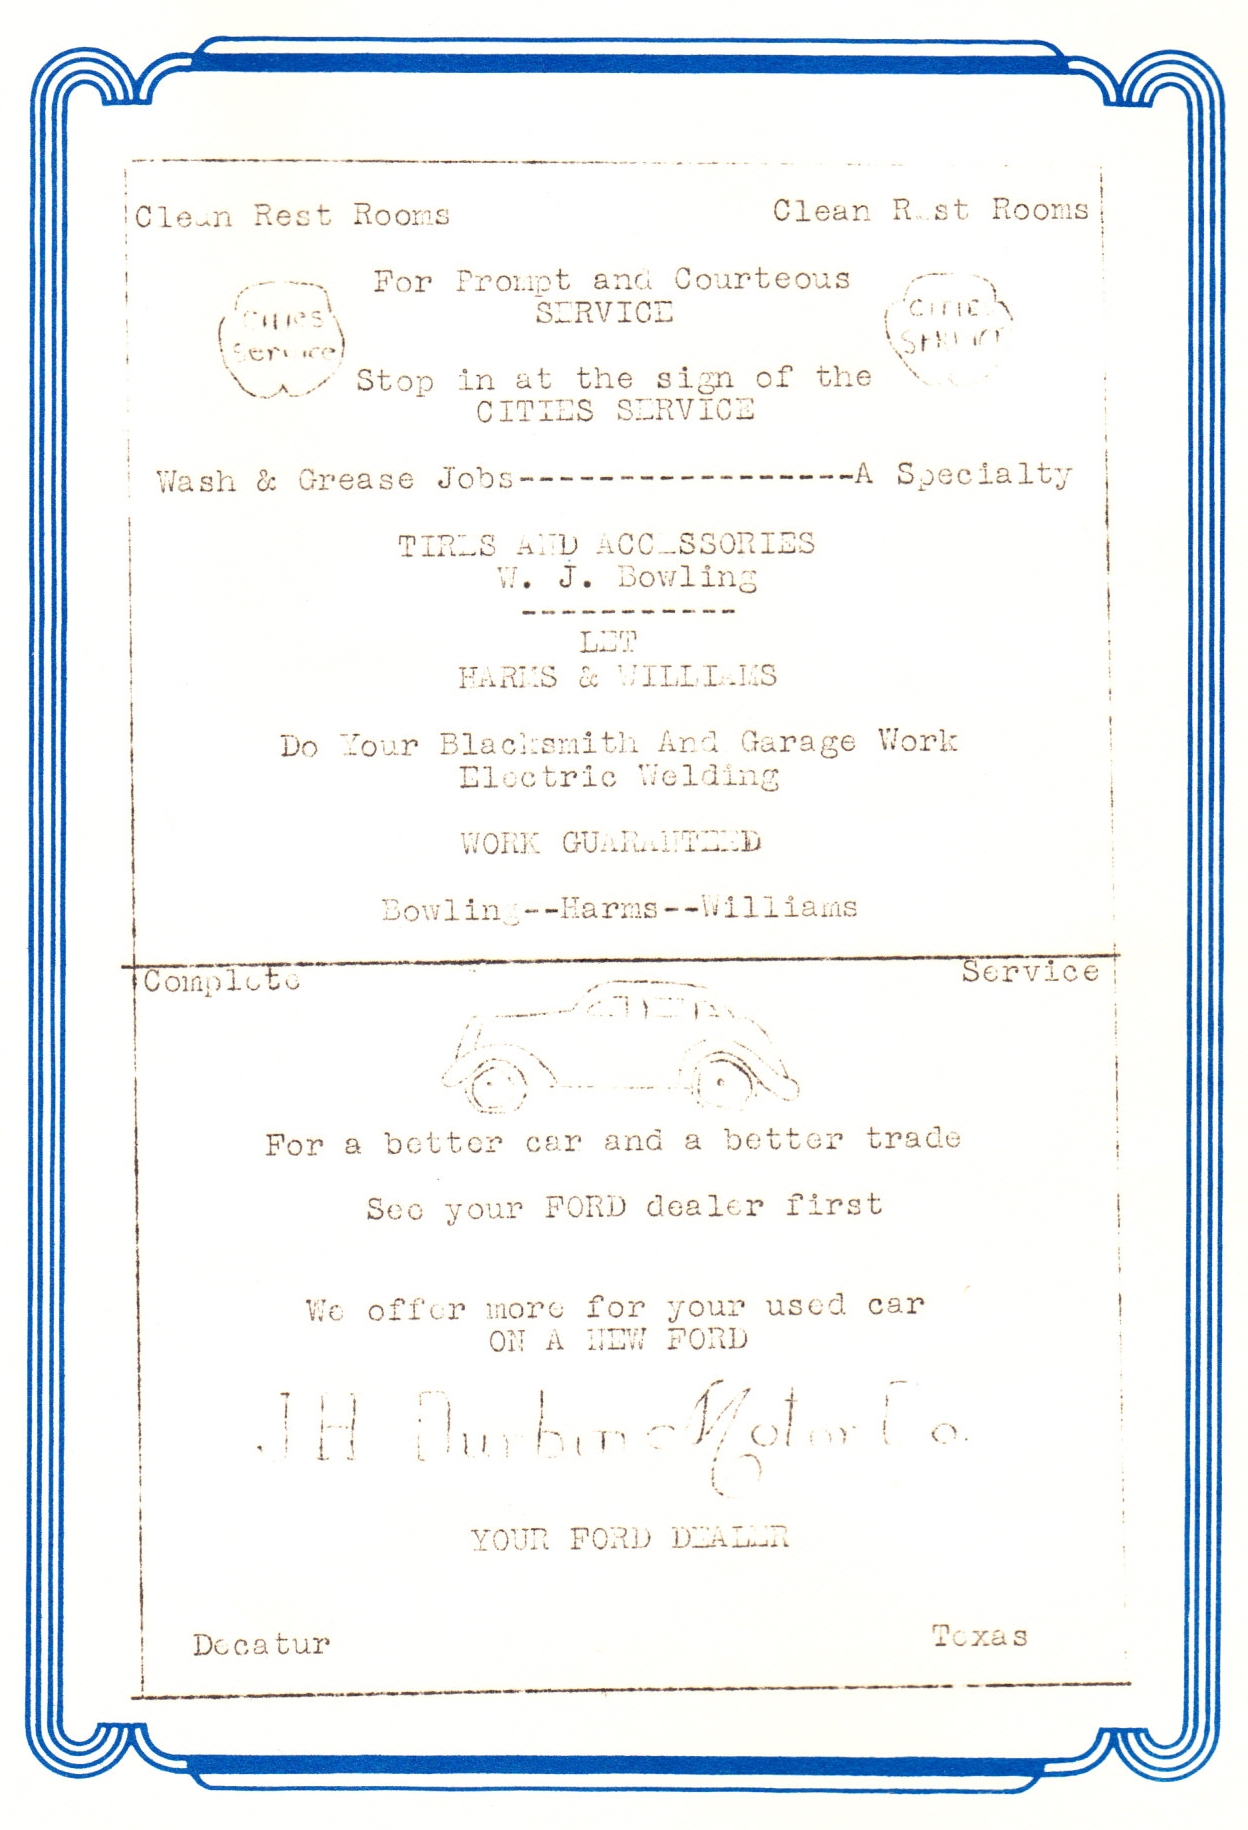 Clean Rest Rooms Clean Rest Rooms
For Prompt and Courteous
SERVICE
Cities Service
Cities Service
Stop in at the sign of the
CITIES SERVICE
Wash & Grease Jobs-----------------A Specialty
TIRES AND ACCESSORIES
W. J. Bowling
-----------
LET
HARMS & WILLIAMS
Do Your Blacksmith And Garage Work
Electric Welding
WORK GUARANTEED
Bowling--Harms--Williams
Complete Service
For a better car and a better trade
See your FORD dealer first
We offer more for your used car
ON A NEW FORD
J H Durbin Motor Co.
YOUR FORD DEALER
Decatur Texas